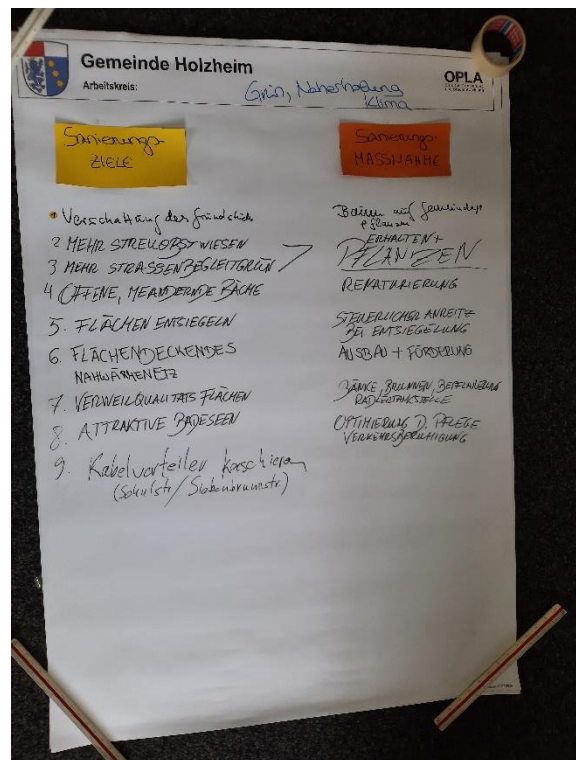 Gemeinde Holzheim
Arbeitskreis:
Grün, Naherholung
Klima
OPLA
Sanierungs-
ZIELE
Sanierungs-
MASSNAHME
Verschattung der
2 MEHR STREUOBSTWIESEN
3 MEHR STRASSENBEGLEITGRÜN
4 OFFENE, MEANDERNDE BÄCHE
5. FLÄCHEN ENTSIEGELN
6. FLÄCHENDECKENDES
NAHWÄRMENETZ
7. VERWEILQUALITÄTS FLÄCHEN
8. ATTRAKTIVE BADESEEN
9. Kabelverteiler kaschieren
(Schulstr/Siebenbrunnstr.)
Bäume auf
pflanzen
ERHALTEN +
PFLANZEN
RENATURIERUNG
STEUERLICHER ANREIZ
BEI ENTSIEGELUNG
AUSBAU + FÖRDERUNG
BÄNKE, BRUNNEN,
RADLERTANKSTELLE
OPTIMIERUNG D. PFLEGE
VERKEHRSBERUHIGUNG